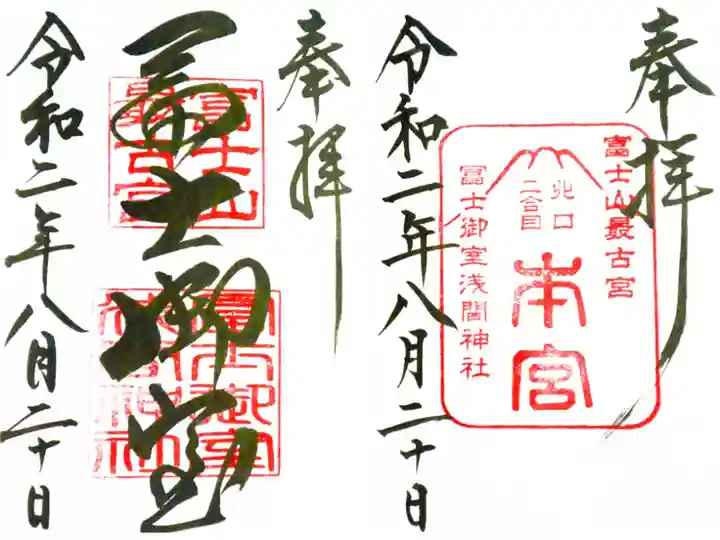 奉拝
富士山
最古宮
本宮
北口
二合目
冨士御室浅間神社
令和二年八月二十日
奉拝
冨士山
最古宮
冨士御室
冨士御室
浅間神社
令和二年八月二十日